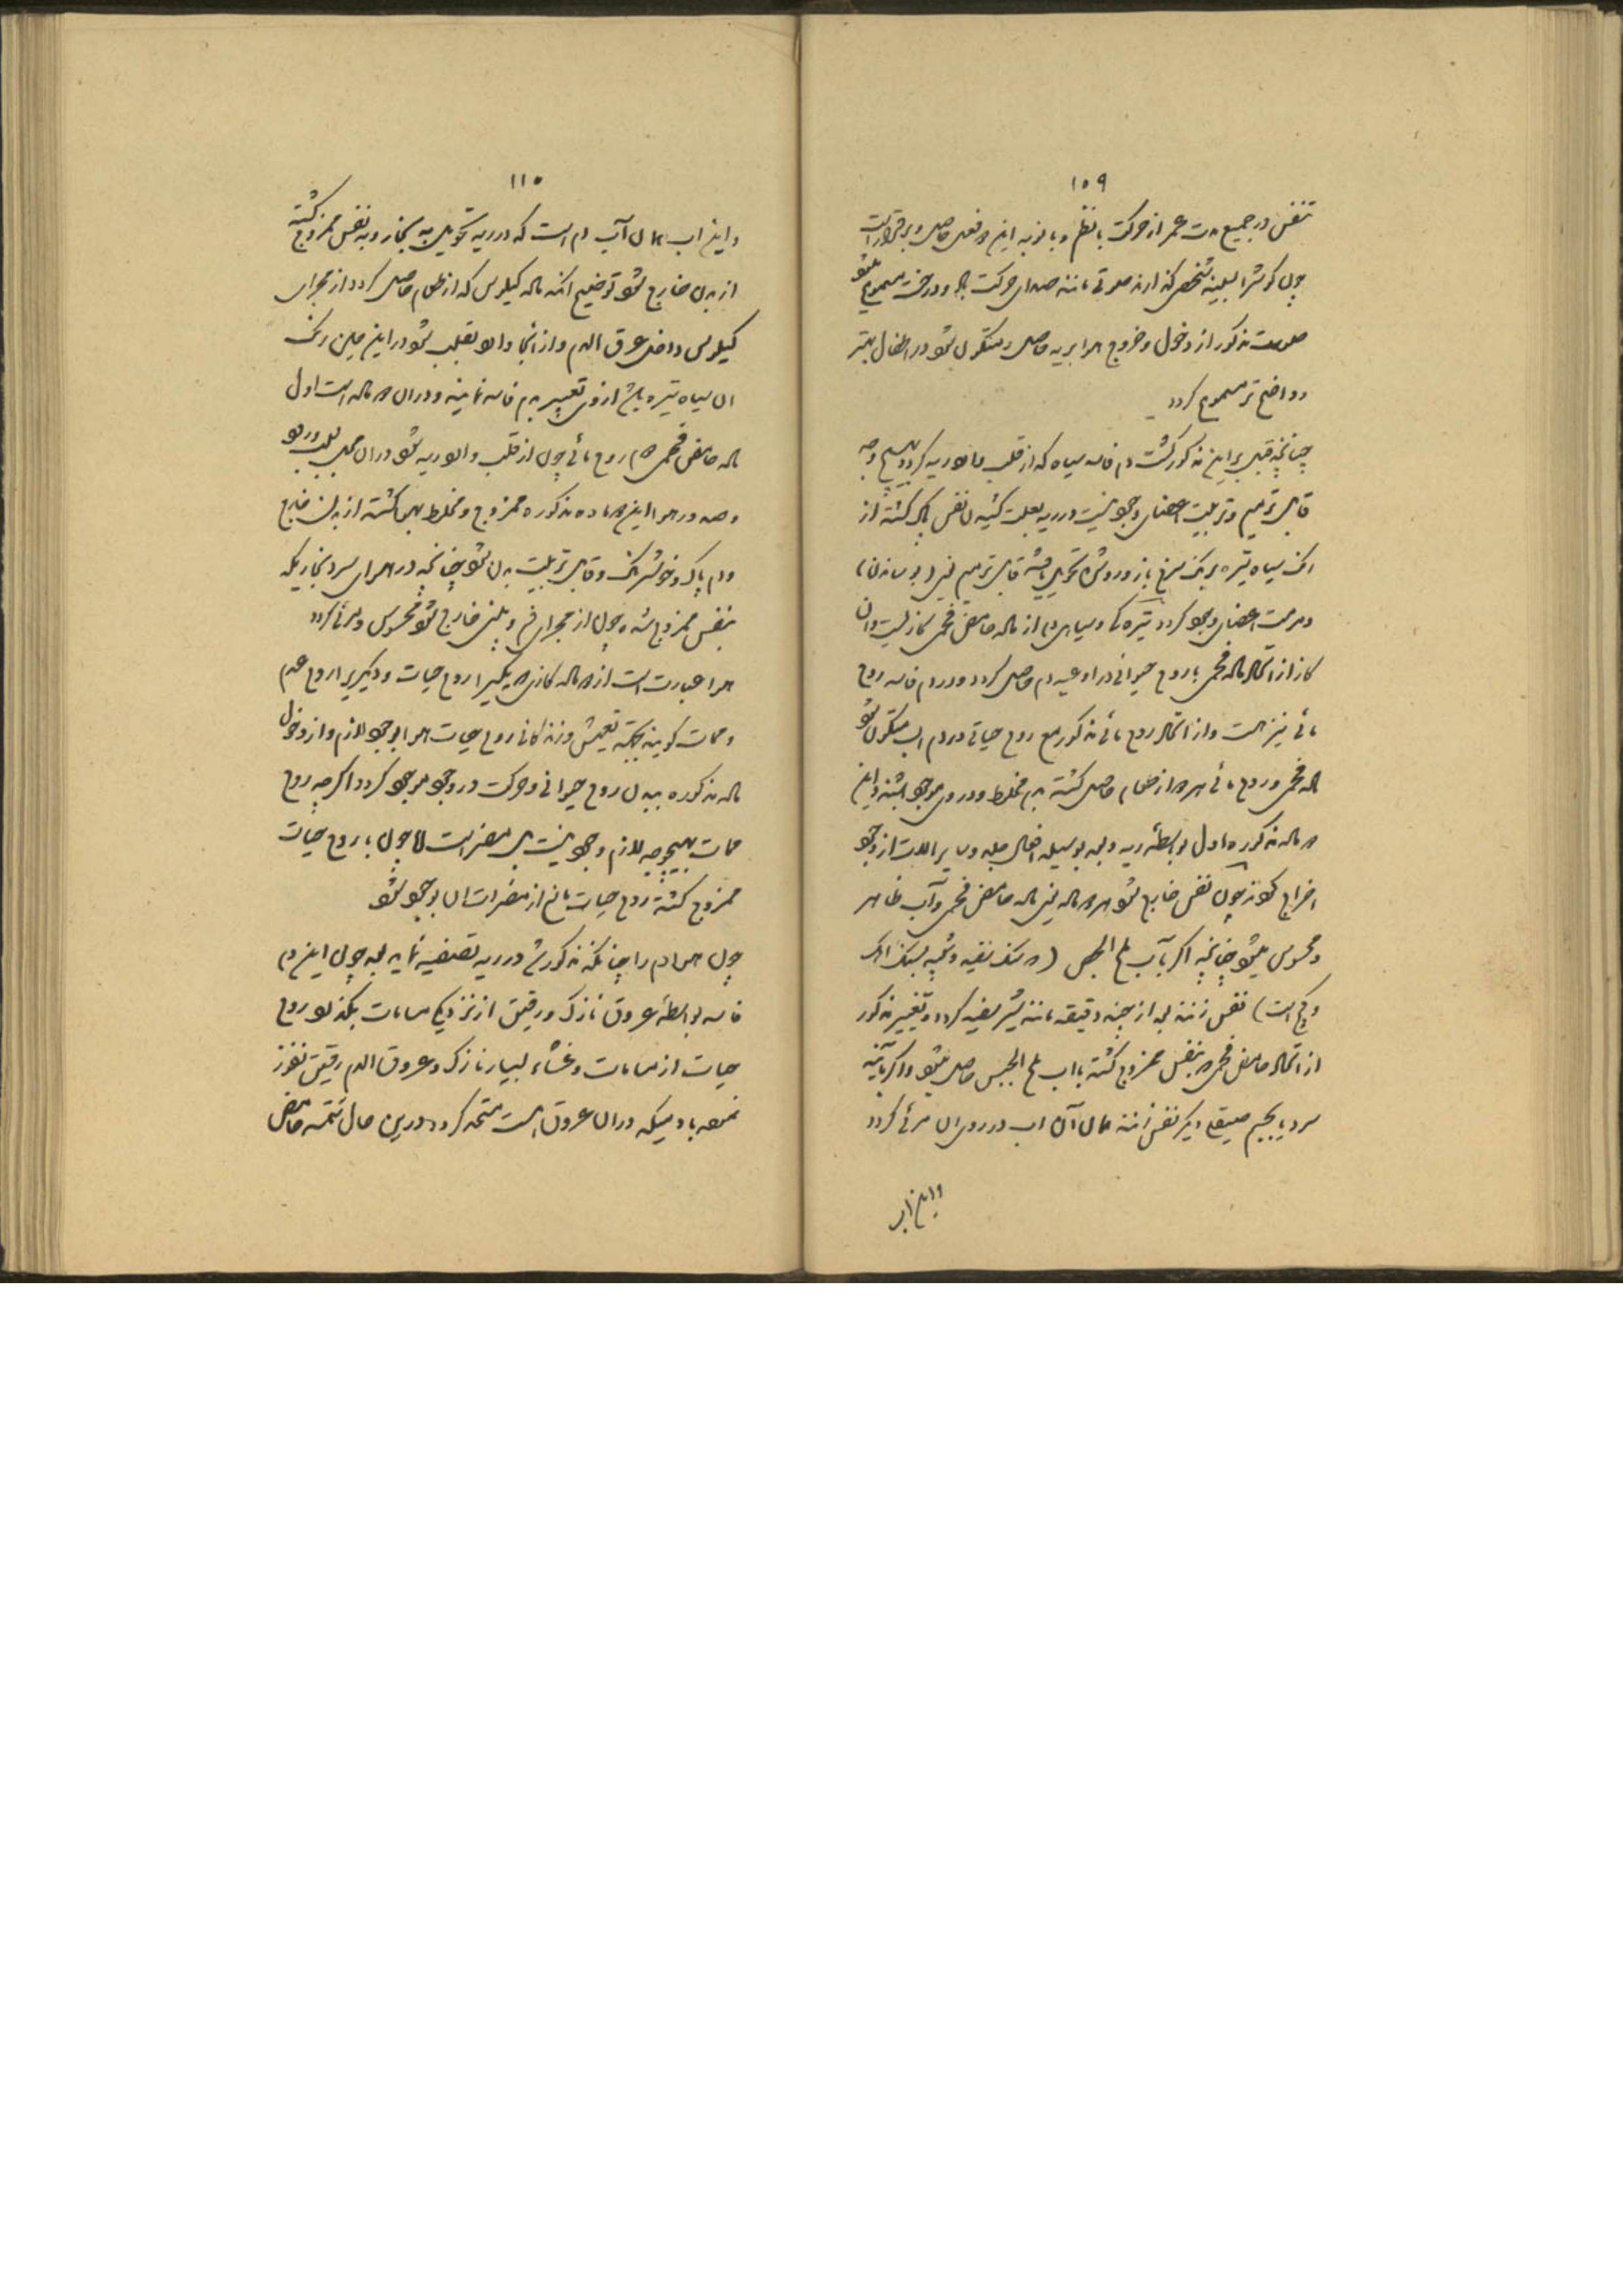 ۱۰۹
تنفس در جمیع مدت عمر از حرکت بانظم و با نوبه این دو فعل حاصل و برقرار است
چون گوش را بسینه شخص گذارند صوتی مانند صدای حرکت باد در درخت مسموع میشود
صوت مذکور از دخول و خروج هوا بریه حاصل و متکون شود در اطفال بهتر
و واضح تر مسموع گردد
چنانچه قبل بر این مذکور گشت دم فاسد سیاه که از قلب وارد ریه گردد بهیچ وجه
قابل ترمیم و تربیت اعضای وجود نیست در ریه بعلت کشیدن نفس پاک گشته از
رنگ سیاه تیره برنگ سرخ باز و روشن تحویل یافته قابل ترمیم یعنی (بدل رساندن)
و مرمت اعضای وجود گردد تیره گی و سیاهی دم از ماده حامض فحمی گازیست و ان
گاز از اتحاد ماده فحمی با روح حیوانی در اوعیه دم حاصل گردد و در دم فاسد روح
مائی نیز هست و از اتحاد روح مائی مذکور مع روح حیاتی در دم اب متکون شود
ماده فحمی و روح مائی هر دو از طعام حاصل گشته بدم مخلوط و در وی موجود باشند و این
دو ماده مذکوره اول بواسطه ریه و بعد بوسیله افعال جلد و سایر الات از وجود
اخراج شوند چون نفس خارج شود هر دو ماده یعنی ماده حامض فحمی و آب ظاهر
و محسوس میشود چنانچه اگر بآب ملح الجص (
و گچ است) نفس زنند بعد از چند دقیقه مانند شیر سفید گردد و تغییر مذکور
از اتحاد حامض فحمی که بنفس ممزوج گشته با اب ملح الجبس حاصل میشود و اگر بآئینه
سرد یا بجسم صیقلی دیگر نفس زنند همان آن اب در روی ان مرئی گردد
و این اب
۱۱۰
و این اب همان آب دم است که در ریه تحویل به بخار و به نفس ممزوج گشته
از بدن خارج شود توضیح انکه ماده کیلوس که از طعام حاصل گردد از مجرای
کیلوس داخل عرق الدم و از انجا وارد بقلب شود در این حین رنگ
ان سیاه تیره باشد از وی تعبیر بدم فاسد نمایند و در ان دو ماده است اول
ماده حامض فحمی دوم روح مائی چون از قلب وارد ریه شود در ان محل بسبب ورود
و صدور هوا این دو ماده مذکوره ممزوج و مخلوط بهوا گشته از بدن خارج
و دم پاک و خوشرنگ و قابل تربیت بدن شود چنانچه در هوای سرد بخاریکه
بنفس ممزوج شده چون از مجرای فم و بینی خارج شود محسوس و مرئی گردد
هوا عبارت است از دو ماده گازی که یکی را روح حیات و دیگریرا روح عدم
و ممات گویند بجهة تعیش و زندگانی روح حیات هوا بوجود لازم و از دخول
ماده مذکوره ببدن روح حیوانی و حرکت در وجود موجود گردد اگر چه روح
ممات بهیچوجه لازم وجود نیست بل مضر است اما چون با روح حیات
ممزوج گشته روح حیات مانع از مضرات ان بوجود شود
چون هوا دم را چنانکه مذکور شد در ریه تصفیه نماید بعد چون این دم
فاسد بواسطه عروق نازک و رقیق از نزدیک مسامات بگذرد روح
حیات از مسامات و غشاء بسیار نازک و عروق الدم رقیق نفوذ
نموده با دمیکه در ان عروق است متحد گردد در این حال تتمه حامض